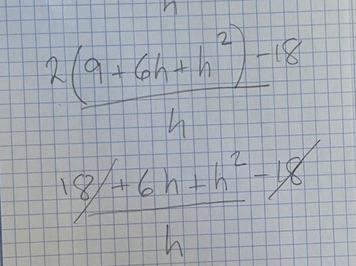 h
2(9+6h+h²)-18
h
18+6h+h²-18
h